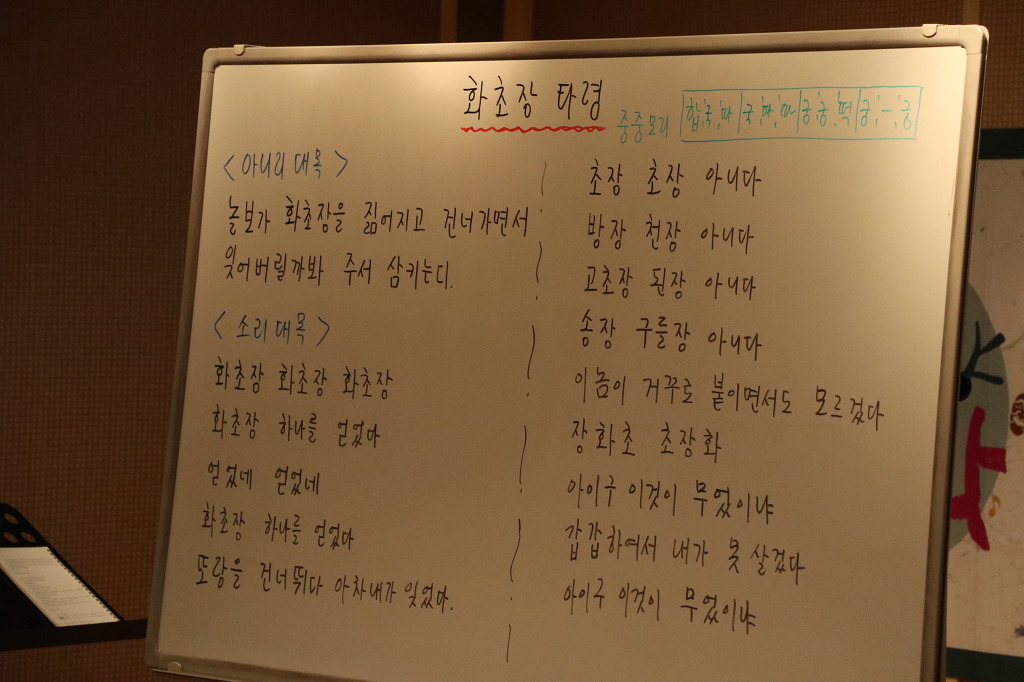 화초장 타령
중중모리 |합,국,따|국,따,따|궁,궁,떡|궁,-,궁|
<아니리 대목>
놀보가 화초장을 짊어지고 건너가면서
잊어버릴까봐 주서 삼키는디.
<소리 대목>
화초장 화초장 화초장
화초장 하나를 얻었다
얻었네 얻었네
화초장 하나를 얻었다
또랑을 건너뛰다 아차내가 잊었다.
초장 초장 아니다
방장 천장 아니다
고초장 된장 아니다
송장 구들장 아니다
이놈이 거꾸로 붙이면서도 모르겄다
장화초 초장화
아이구 이것이 무었이냐
갑갑하여서 내가 못 살겄다
아이구 이것이 무었이냐